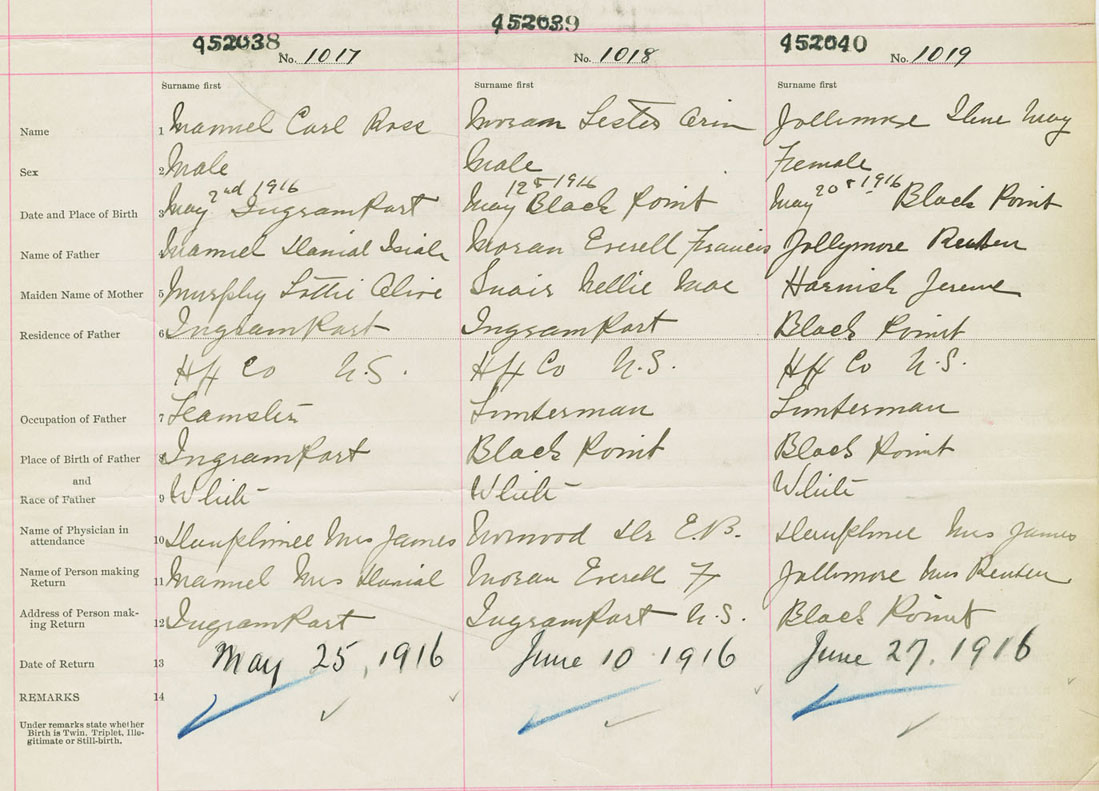 452038 452039 452040
No. 1017 No. 1018 No. 1019
Surname first Surname first Surname first
Name 1 Mannel Carl Ross Moran Lester Jollimore Ilene May
Sex 2 Male Male Female
Date and Place of Birth 3 May 2nd 1916 Ingram Port May 12th 1916 Black Point May 20th 1916 Black Point
Name of Father 4 Mannel Danial Isiah Moran Everell Francis Jollymore Reuben
Maiden Name of Mother 5 Murphy Lottie Olive Snair Nellie Mae Harnish
Residence of Father 6 Ingram Port Ingram Port Black Point
Hfx Co N.S. Hfx Co N.S. Hfx Co N.S.
Occupation of Father 7 Teamster Lumterman Lumterman
Place of Birth of Father 8 Ingram Port Black Point Black Point
and
Race of Father 9 White White White
Name of Physician in
attendance 10 Dauphinee Mrs James Norwood Dr E.B. Dauphinee Mrs James
Name of Person making
Return 11 Mannel Mrs Danial Moran Everell F Jollimore Mrs Reuben
Address of Person mak-
ing Return 12 Ingram Port Ingram Port N.S. Black Point
Date of Return 13 May 25, 1916 June 10 1916 June 27, 1916
REMARKS 14
Under remarks state whether
Birth is Twin, Triplet, Ille-
gitimate or Still-birth.